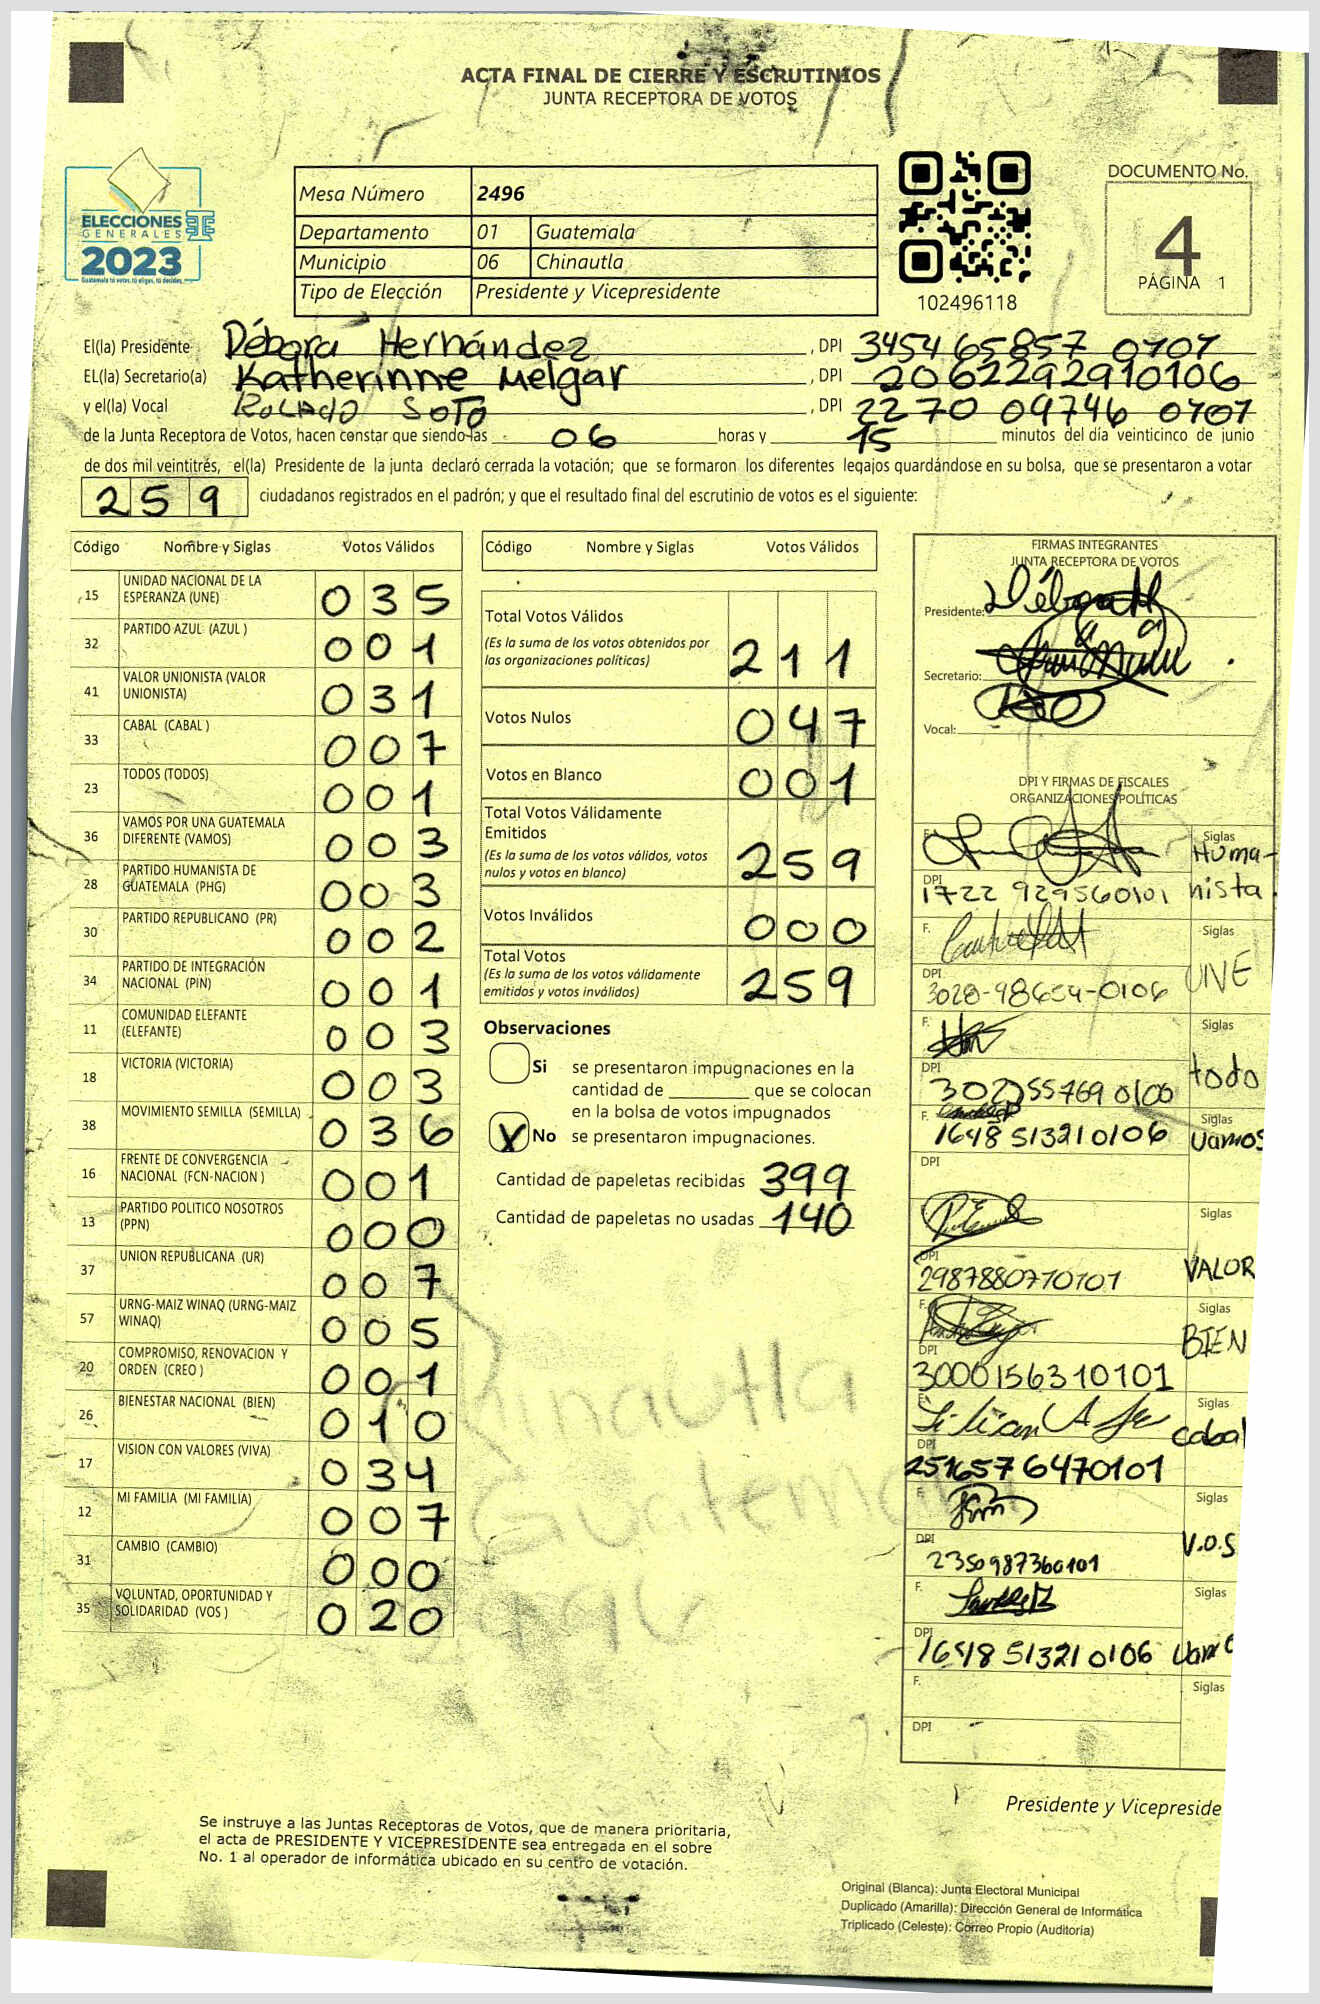 ACTA FINAL DE CIERRE Y ESCRUTINIOS
JUNTA RECEPTORA DE VOTOS
ELECCIONES
GENERALES
2023
Guatemala tú votas, tú eliges, tú decides
Mesa Número 2496
Departamento 01 Guatemala
Municipio 06 Chinautla
Tipo de Elección Presidente y Vicepresidente
102496118
DOCUMENTO No.
4
PÁGINA 1
El(la) Presidente Débora Hernández , DPI 3454 65857 0101
EL(la) Secretario(a) Katherinne Melgar , DPI 2062292910106
y el(la) Vocal ROLAdO SOTO , DPI 2270 09746 0101
de la Junta Receptora de Votos, hacen constar que siendo las 06 horas y 15 minutos del día veinticinco de junio
de dos mil veintitrés, el(la) Presidente de la junta declaró cerrada la votación; que se formaron los diferentes legajos quardándose en su bolsa, que se presentaron a votar
259 ciudadanos registrados en el padrón; y que el resultado final del escrutinio de votos es el siguiente:
Código Nombre y Siglas Votos Válidos
15 UNIDAD NACIONAL DE LA ESPERANZA (UNE) 035
32 PARTIDO AZUL (AZUL ) 001
41 VALOR UNIONISTA (VALOR UNIONISTA) 031
33 CABAL (CABAL ) 007
23 TODOS (TODOS) 001
36 VAMOS POR UNA GUATEMALA DIFERENTE (VAMOS) 003
28 PARTIDO HUMANISTA DE GUATEMALA (PHG) 003
30 PARTIDO REPUBLICANO (PR) 002
34 PARTIDO DE INTEGRACIÓN NACIONAL (PIN) 001
11 COMUNIDAD ELEFANTE (ELEFANTE) 003
18 VICTORIA (VICTORIA) 003
38 MOVIMIENTO SEMILLA (SEMILLA) 036
16 FRENTE DE CONVERGENCIA NACIONAL (FCN-NACION ) 001
13 PARTIDO POLITICO NOSOTROS (PPN) 000
37 UNION REPUBLICANA (UR) 007
57 URNG-MAIZ WINAQ (URNG-MAIZ WINAQ) 005
20 COMPROMISO, RENOVACION Y ORDEN (CREO ) 001
26 BIENESTAR NACIONAL (BIEN) 010
17 VISION CON VALORES (VIVA) 034
12 MI FAMILIA (MI FAMILIA) 007
31 CAMBIO (CAMBIO) 000
35 VOLUNTAD, OPORTUNIDAD Y SOLIDARIDAD (VOS ) 020
Código Nombre y Siglas Votos Válidos
Total Votos Válidos 211
(Es la suma de los votos obtenidos por
las organizaciones políticas)
Votos Nulos 047
Votos en Blanco 001
Total Votos Válidamente
Emitidos 259
(Es la suma de los votos válidos, votos
nulos y votos en blanco)
Votos Inválidos 000
Total Votos 259
(Es la suma de los votos válidamente
emitidos y votos inválidos)
Observaciones
Si se presentaron impugnaciones en la
cantidad de ________ que se colocan
en la bolsa de votos impugnados
X No se presentaron impugnaciones.
Cantidad de papeletas recibidas 399
Cantidad de papeletas no usadas 140
Chinautla
Guatemala
FIRMAS INTEGRANTES
JUNTA RECEPTORA DE VOTOS
Presidente:
Secretario:
Vocal:
DPI Y FIRMAS DE FISCALES
ORGANIZACIONES POLÍTICAS
F. Siglas Huma-
DPI 1722 929560101 nista.
F. Siglas
DPI 3028-98654-0106 UNE
F. Siglas
DPI 3022557690106 todo
F. Siglas
1648 513210106 Vamos
DPI
Siglas
DPI 2987880710101 VALOR
F. Siglas
DPI 3000156310101 BIEN
F. Siglas
DPI 2516576470101 cabal
F. Siglas
DPI 2350987360101 V.O.S
F. Siglas
DPI 1648 513210106 Vamo
F. Siglas
DPI
Presidente y Vicepreside
Se instruye a las Juntas Receptoras de Votos, que de manera prioritaria,
el acta de PRESIDENTE Y VICEPRESIDENTE sea entregada en el sobre
No. 1 al operador de informática ubicado en su centro de votación.
Original (Blanca): Junta Electoral Municipal
Duplicado (Amarilla): Dirección General de Informática
Triplicado (Celeste): Correo Propio (Auditoria)